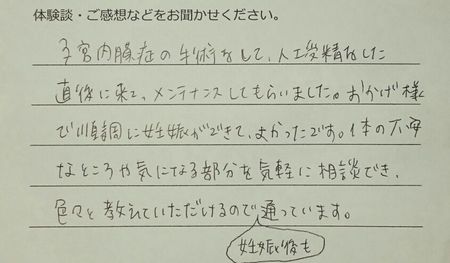 体験談・ご感想などをお聞かせください。
子宮内膜症の手術をして、人工受精をした
直後に来て、メンテナンスしてもらいました。おかげ様
で順調に妊娠ができて、よかったです。体の不安
なところや気になる部分を気軽に相談でき、
色々と教えていただけるので通っています。
妊娠後も